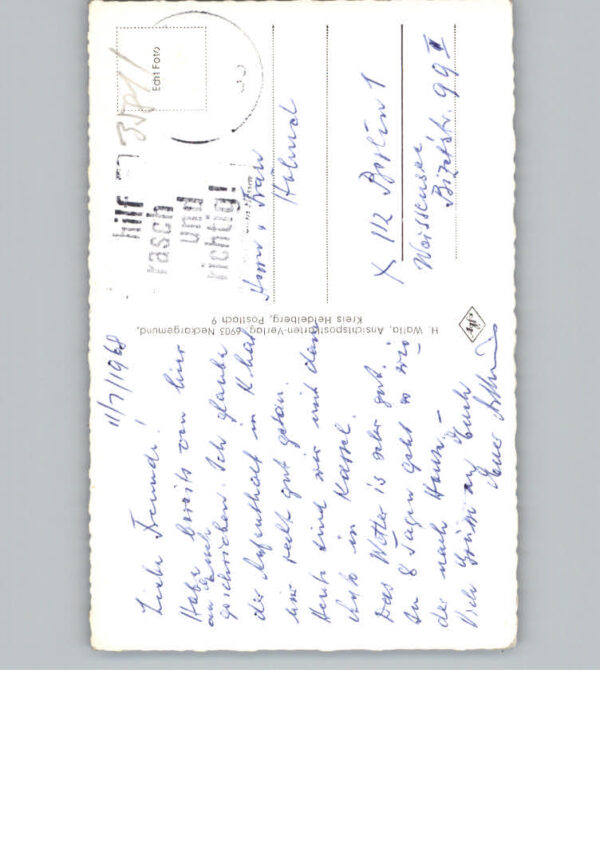 11/7/1968
Liebe Freunde!
Habe bereits von hier
an Euch
geschrieben. Ich glaube
der Aufenthalt in K hat
mir recht gut getan.
Heute sind wir mit dem
Auto in Kassel.
Das Wetter is sehr gut.
In 8 Tagen geht es wie
der nach Hause. –
Viele Grüße an Euch
Euer
H. Walla, Ansichtspostkarten-Verlag, 6903 Neckargemünd,
Kreis Heidelberg, Postfach 9
hilf
rasch
und
richtig!
Echt Foto
Herrn u Frau
X 112 Berlin 1
Weissensee
Bizetstr. 99 I